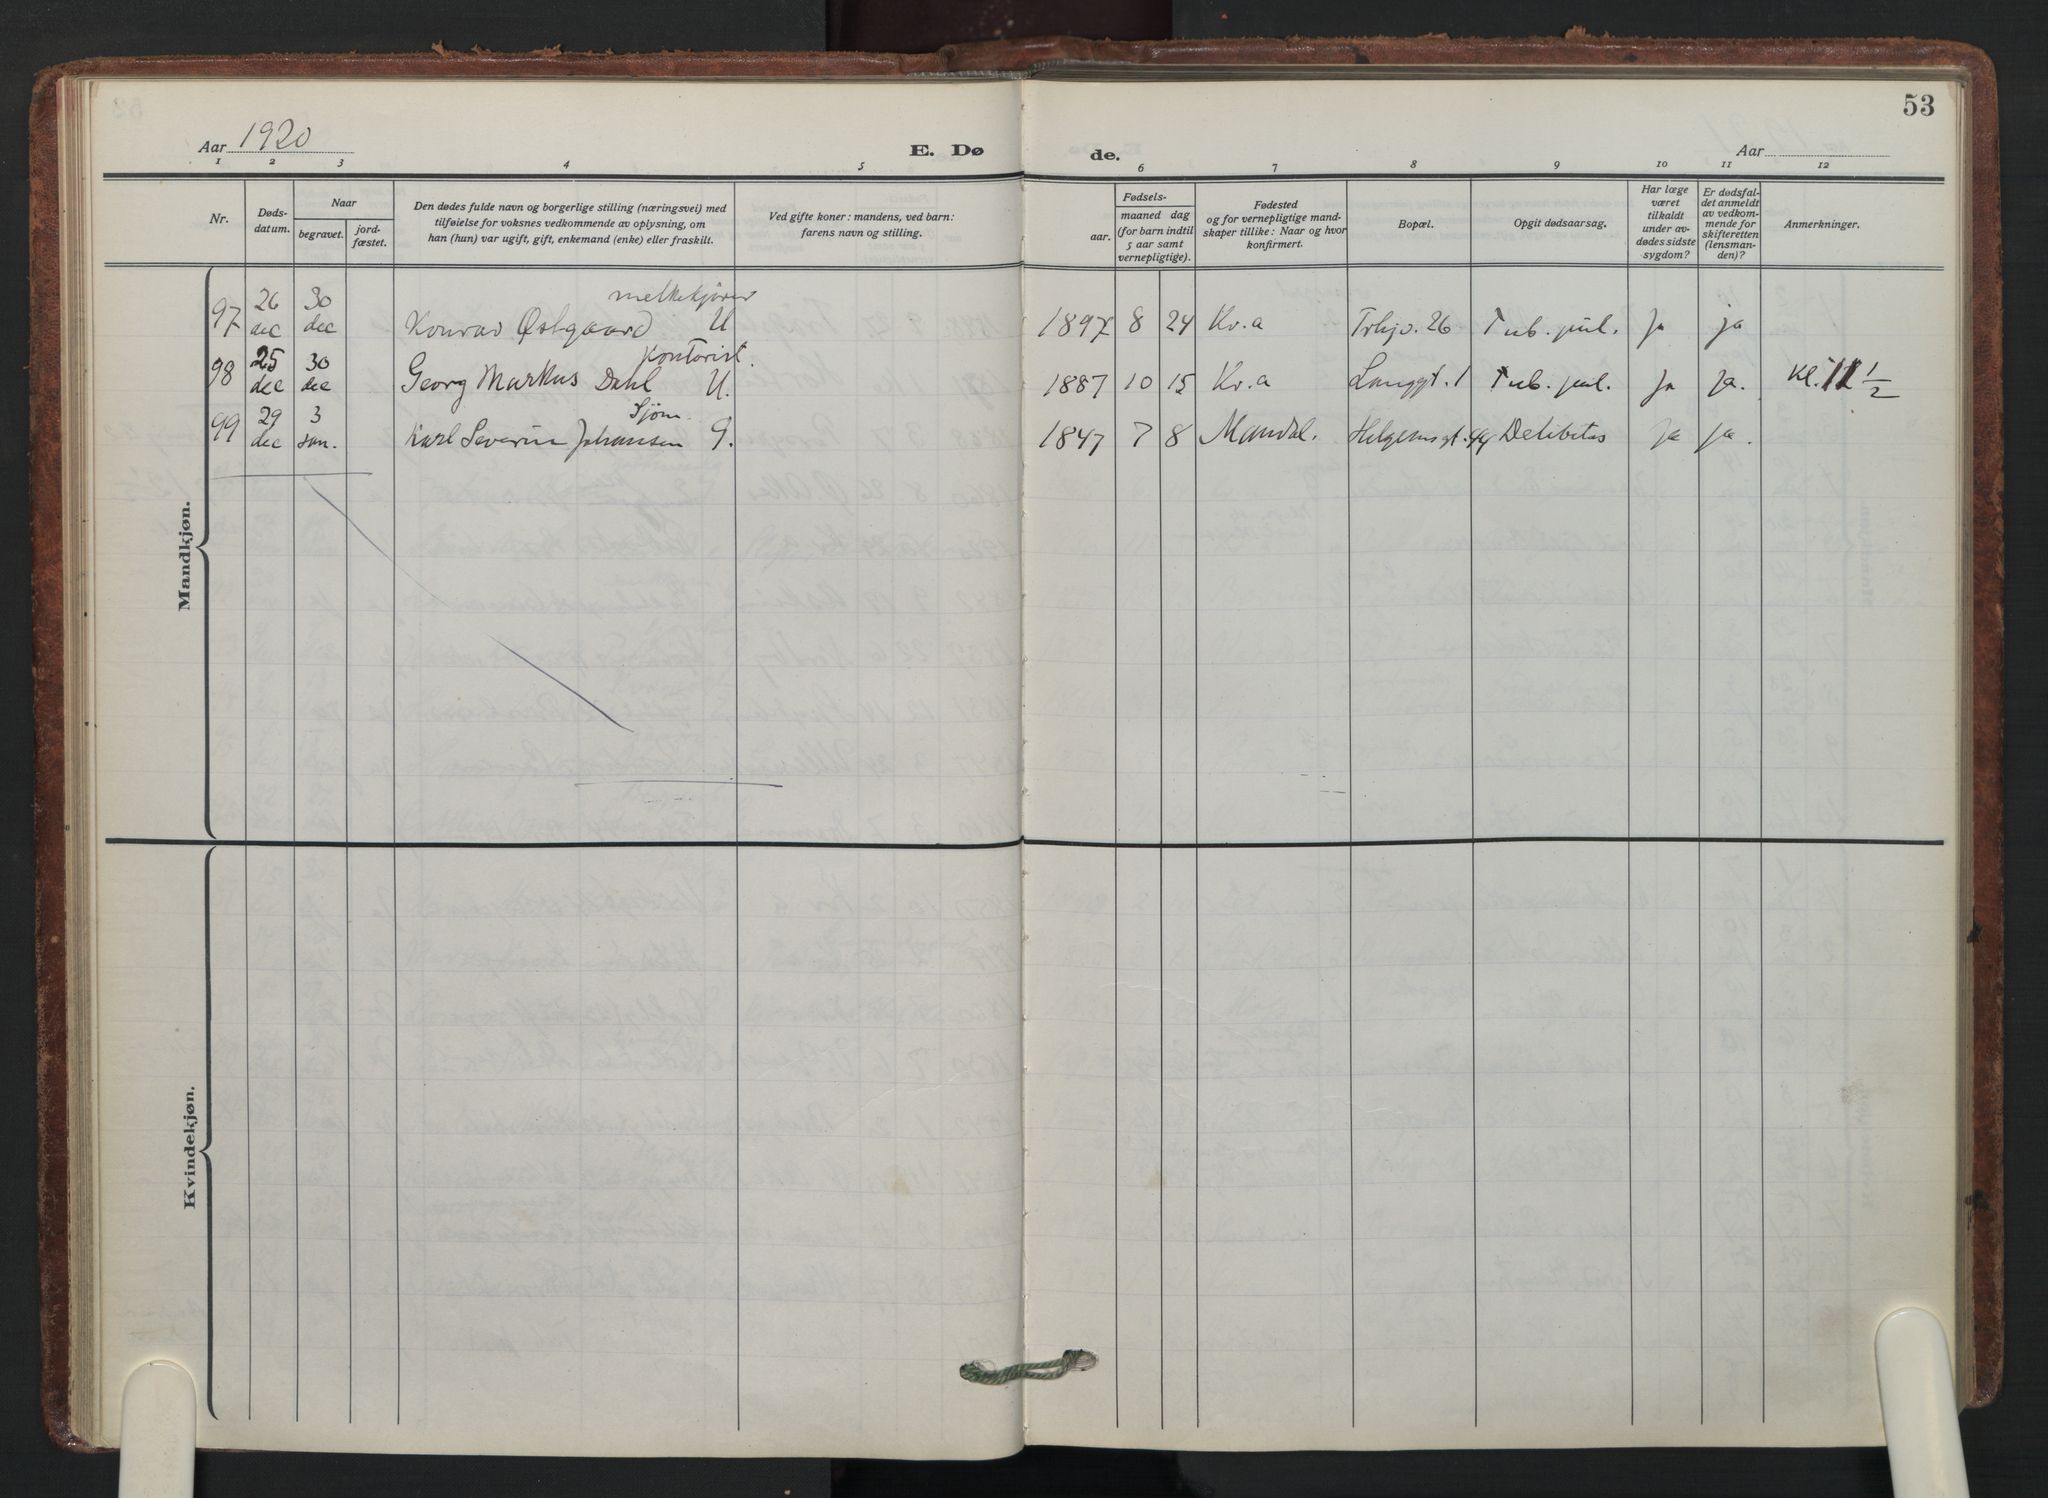 53
Aar 1920
E. Dø
de.
Aar
1 2 3 4 5 6 7 8 9 10 11 12
Nr.
Døds-
datum.
Naar
begravet.
jord-
fæstet.
Den dødes fulde navn og borgerlige stilling (næringsvei) med
tilføielse for voksnes vedkommende av oplysning, om
han (hun) var ugift, gift, enkemand (enke) eller fraskilt.
Ved gifte koner: mandens, ved barn:
farens navn og stilling.
Fødsels-
aar.
maaned dag
(for barn indtil
5 aar samt
vernepligtige).
Fødested
og for vernepligtige mand-
skaper tillike: Naar og hvor
konfirmert.
Bopæl.
Opgit dødsaarsag.
Har læge
været
tilkaldt
under av-
dødes sidste
sygdom?
Er dødsfal-
det anmeldt
av vedkom-
mende for
skifteretten
(lensman-
den)?
Anmerkninger.
Mandkjøn.
26 30 melkekjører
97 dec dec Konrad Østgaard U 1897 8 24 Kr.a Trhjv. 26 Tub. pul. Ja ja
25 30 Kontorist.
98 dec dec Georg Markus Dahl U. 1887 10 15 Kr.a Langgt. 1 Tub. pul. Ja Ja. Kl. 11 1/2
29 3 Sjøm.
99 dec jan. Karl Severin Johansen G. 1847 7 8 Mandal. Helgensgt. 44 Debilitas Ja Ja.
Kvindekjøn.